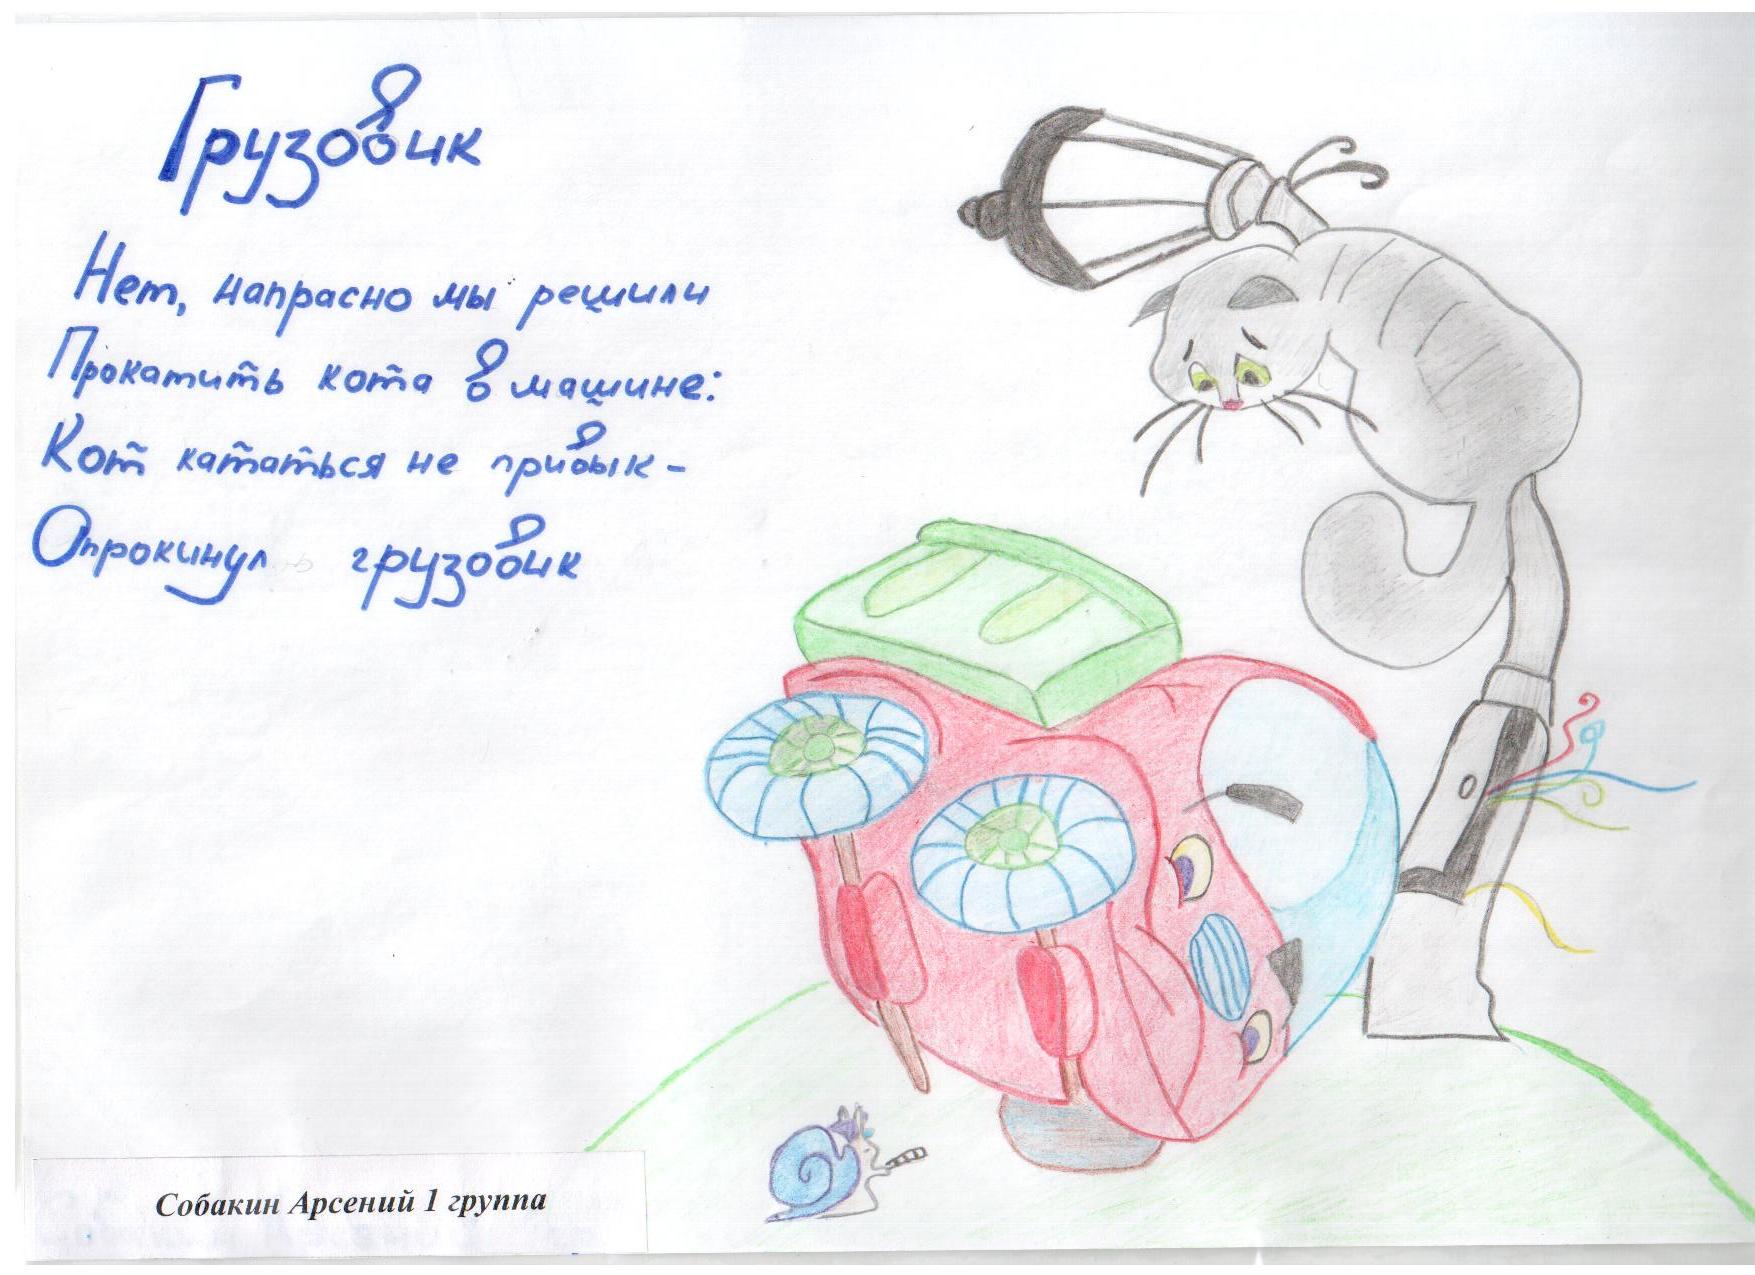 Грузовик
Нет, напрасно мы решили
Прокатить кота в машине:
Кот кататься не привык -
Опрокинул грузовик
Собакин Арсений 1 группа